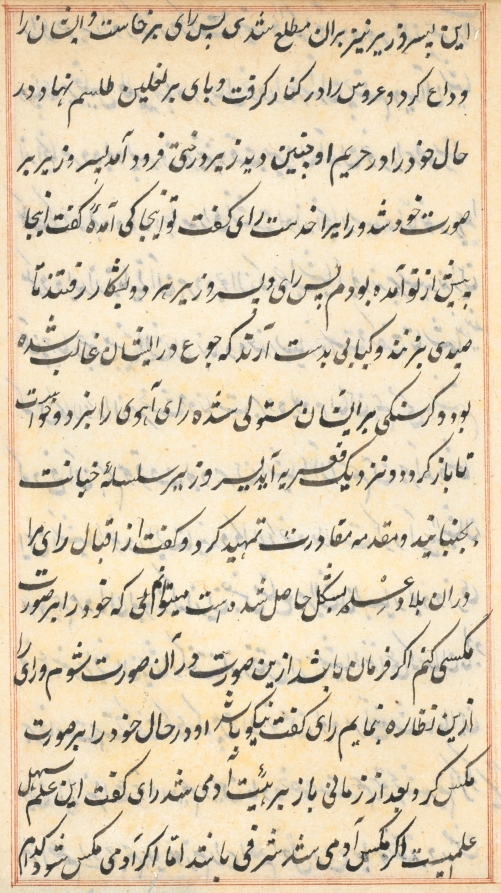 این پسر وزیر نیز بران مطلع شدی پس رای برخاست و ایشان را
وداع کرد و عروس را در کنار گرفت و پای بر نعلین طلسم نهاد در
حال خود را در حریم او چنین دید زیر درختی فرود آمد پسر وزیر بر
صورت خود شد و رایرا خدمت رای گفت تو اینجا کی آمدهٔ گفت اینجا
پیش از تو آمده بودم پس رای و پسر وزیر هر دو بشکار رفتند تا
صیدی بزنند و کبابی بدست آرند که جوع در ایشان غالب شده
بود و گرسنگی بر ایشان مستولی شده رای آهوی را بزد و خواست
تا باز گردد و نزدیک قصر به آید پسر وزیر سلسلهٔ خیانت
بجنبانید و مقدمه مقادرت تمهید کرد و گفت از اقبال رای مرا
دران بلاد علم مشکل حاصل شده است میتوانم که خود را بر صورت
مکسی کنم اکر فرمان باشد ازین صورت در آن صورت شوم و رای را
ازین نظاره نمایم رای گفت نیکو باشد او در حال خود را بر صورت
مکس کرد و بعد از زمانی باز بر هیئت آدمی شد رای گفت این علم سهل
علمیست اکر مکس آدمی شد شرفی باشد اما اکر آدمی مکس شود کدام